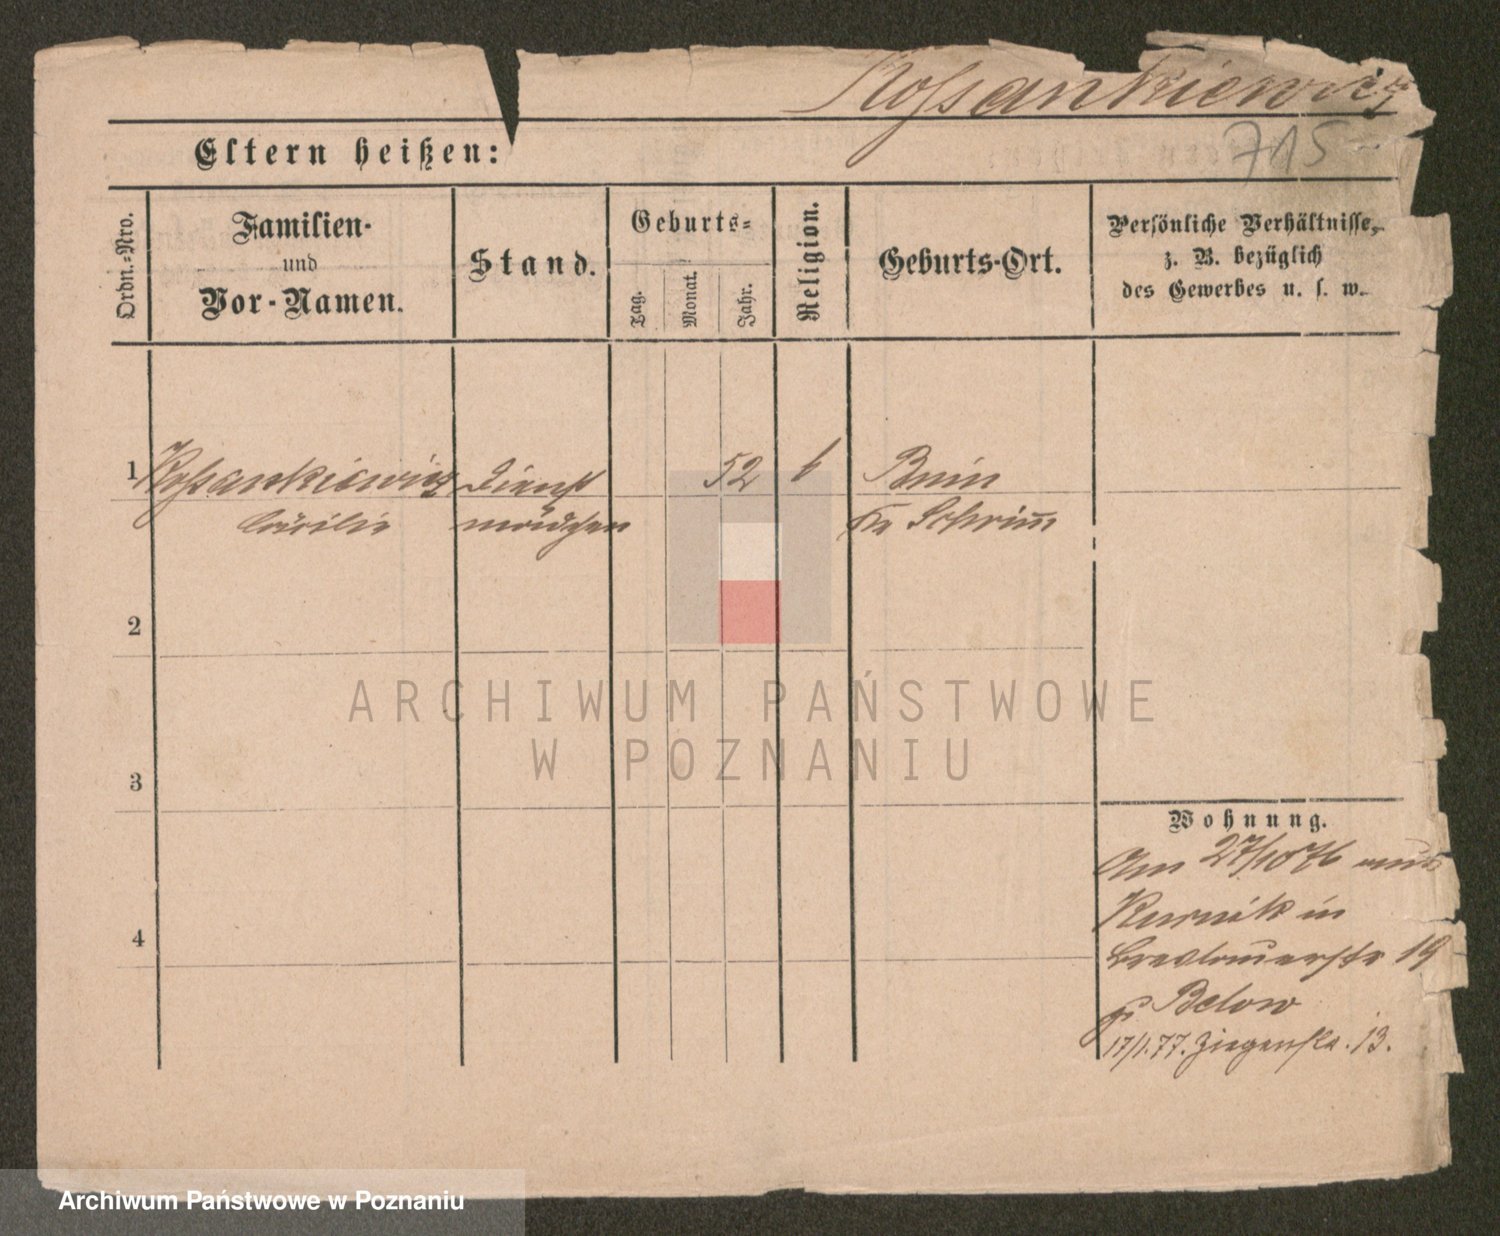 Koſsankiewicz
715
Eltern heißen:
Ordn.-Nro.
Familien-
und
Vor-Namen.
Stand.
Geburts-
Tag.
Monat.
Jahr.
Religion.
Geburts-Ort.
Persönliche Verhältnisse,
z. B. bezüglich
des Gewerbes u. s. w.
1 Koſsankiewicz Dienst 52 k Bnin
Cäcilie mädchen Kr Schrimm
2
3
4
Wohnung.
Am 27/10 76 aus
Kurnik in
Breslauerstr 19
Below
17/1.77. Ziegenstr. 13.
ARCHIWUM PAŃSTWOWE
W POZNANIU
Archiwum Państwowe w Poznaniu